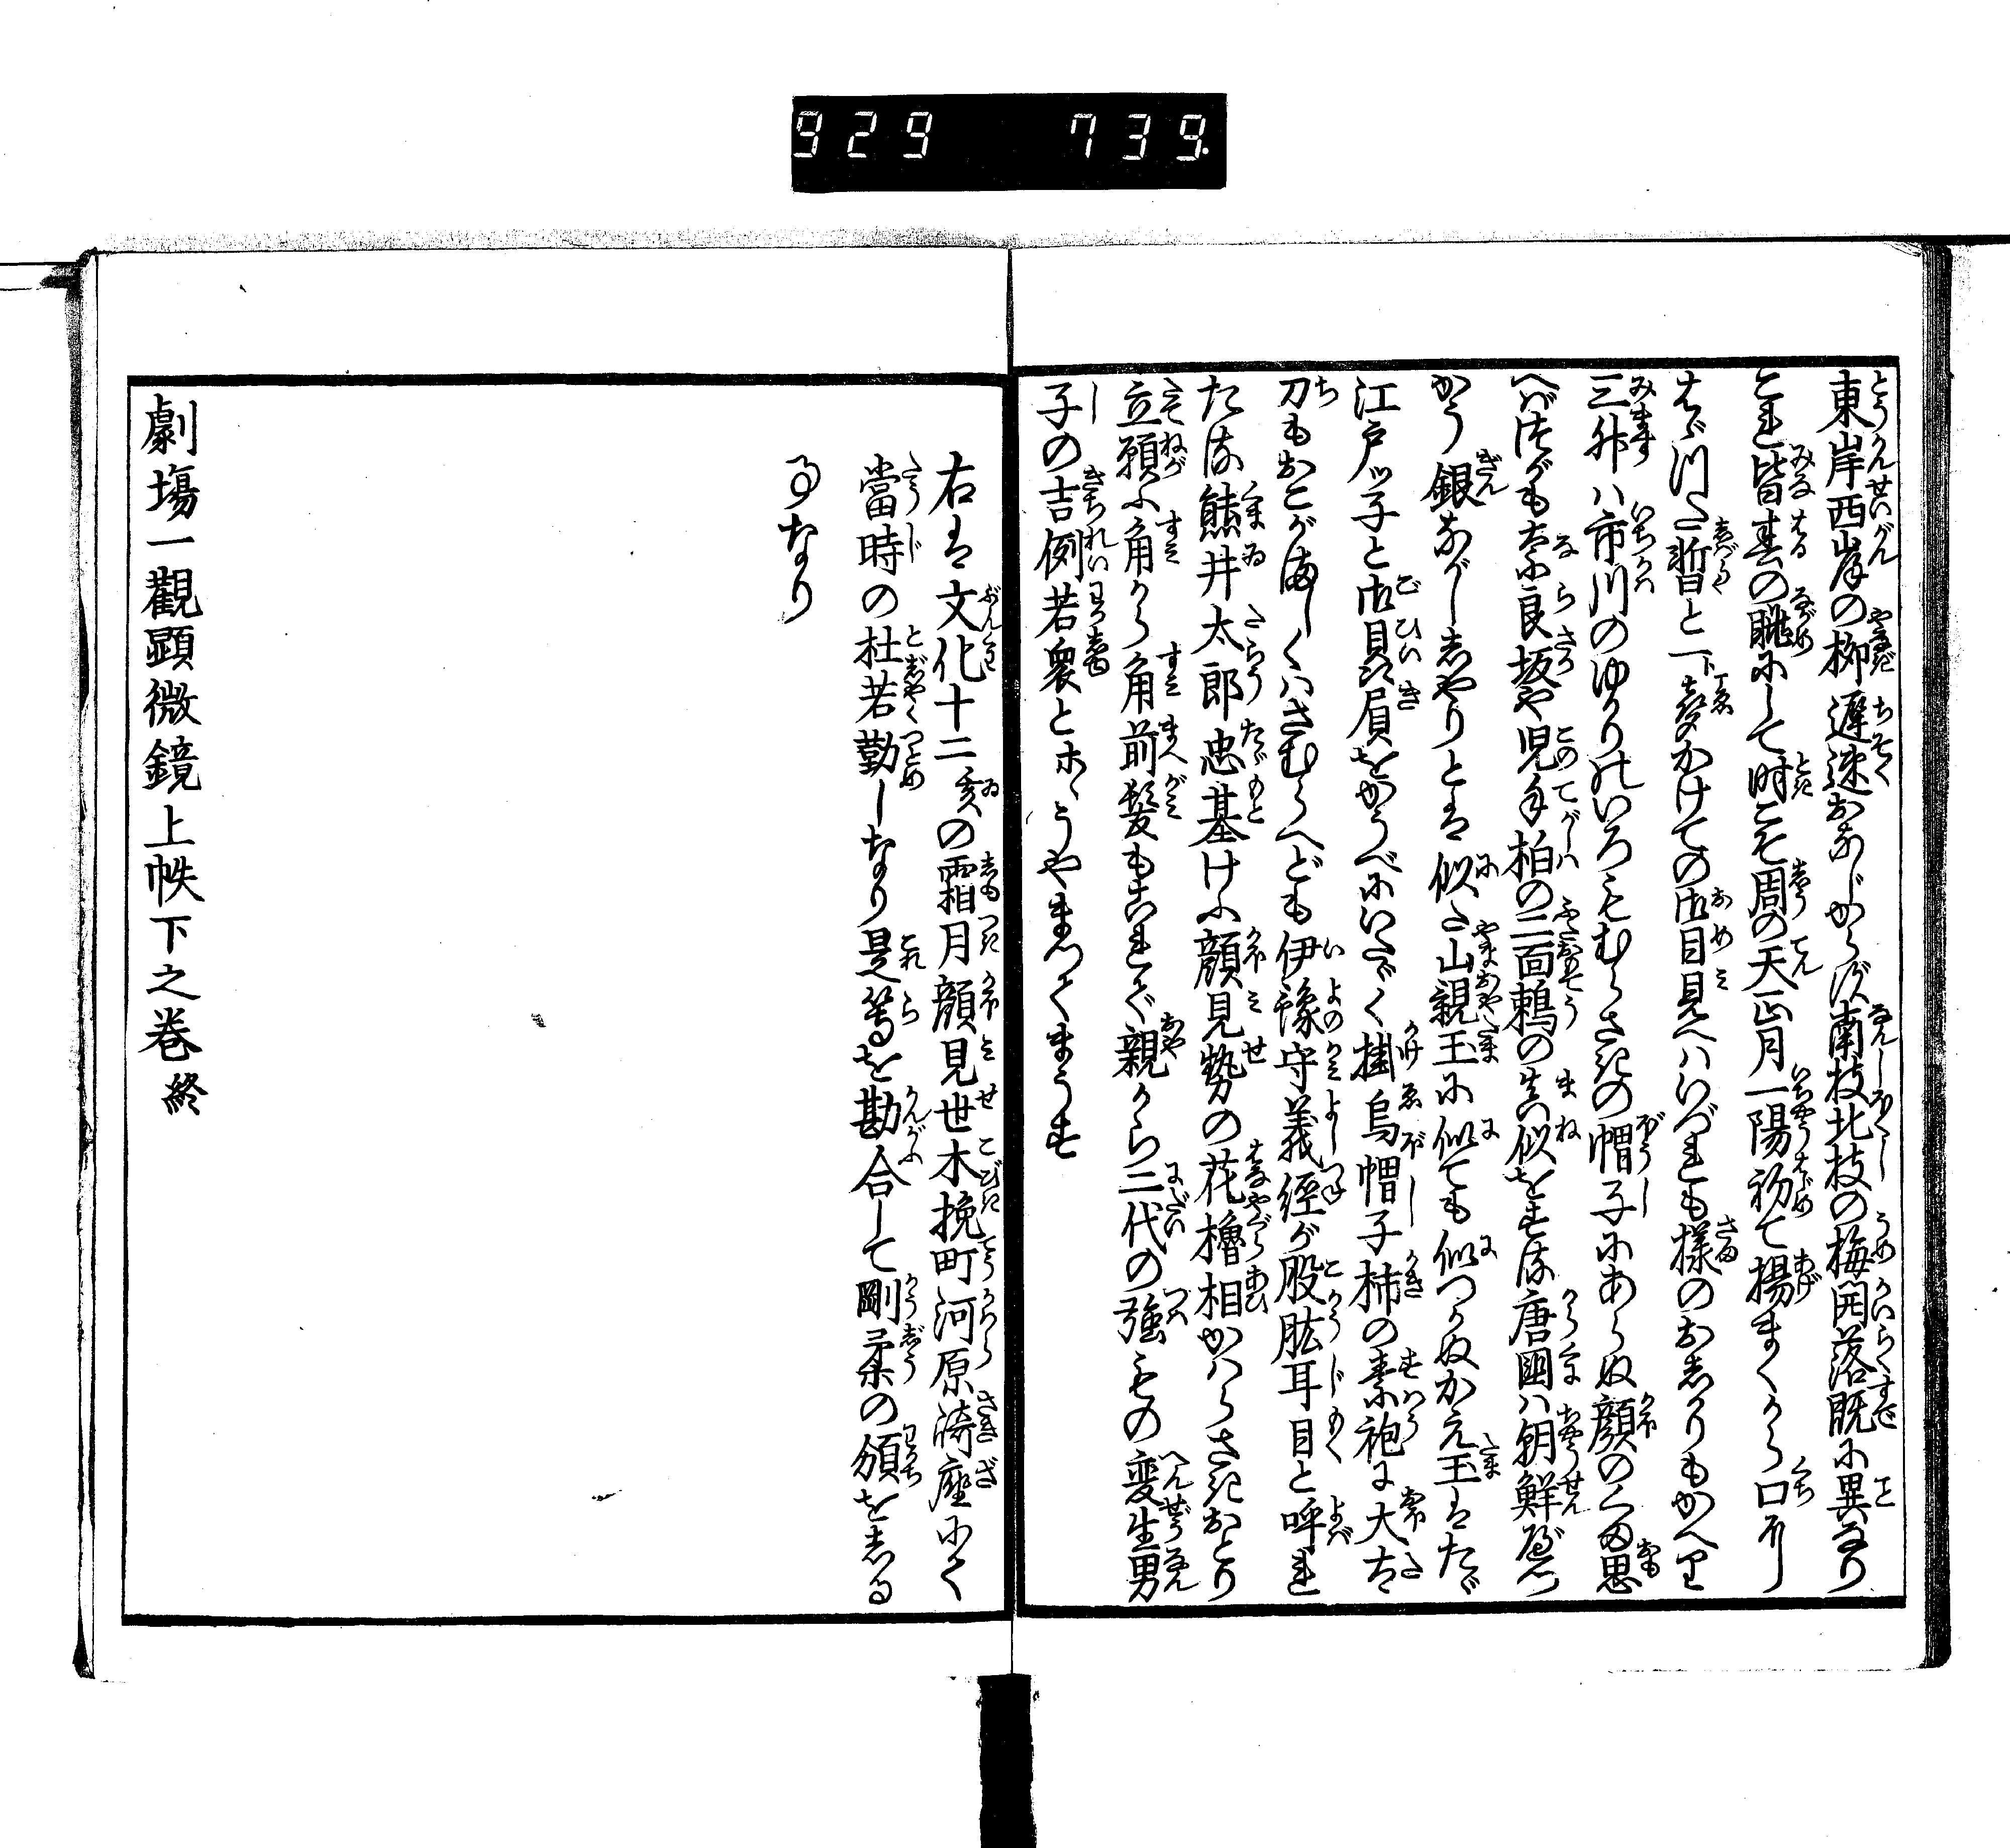 929 739
東岸西岸の柳遅速おなじからず南枝北枝の梅開落既に異なり
これ皆春の眺にして時こそ周の天正月一陽初て揚まくから口ほ
そで川た暫と一下声かけての御目見へはいづれも様のおしかりもかへり
三升ハ市川のゆかりのいろもむらさきの帽子にあらぬ顔のくま思
へばはずもなら坂や児手柏の二面鶫の真似をする唐国ハ朝鮮
かう銀ながしおやりとは似た山親玉に似ても似つかぬかえ玉はただ
江戸ッ子と御贔屓をかうべにいただく掛烏帽子柿の素袍に大太
刀もおこがましくハさむらへども伊豫守義経が股肱耳目と呼れ
たる熊井太郎忠基けふ顔見勢の花櫓相かハらさずおとり
立願ふ角から角前髪もおれそれで親から二代の強もの変生男
子の吉例若衆とホヽうやまつてまうす
右は文化十二亥の霜月顔見世木挽町河原崎座にて
當時の杜若勤しなり是等を勘合して剛柔の頒をしる
事なり
劇場一觀顕微鏡上帙下之巻終